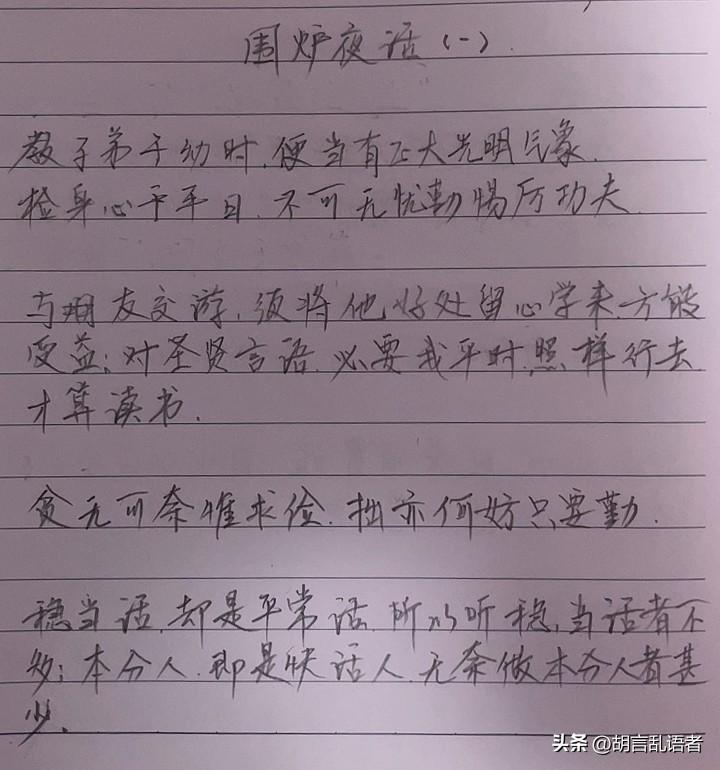 围炉夜话(一).
教子弟于幼时.便当有正大光明气象.
检身心于平日.不可无忧勤惕厉功夫
与朋友交游,须将他好处留心学来.方能
受益;对圣贤言语.必要我平时.照样行去
才算读书.
贫无可奈惟求俭.拙亦何妨只要勤.
稳当话.却是平常话.所以听稳当话者不
多;本分人.即是快话人.无奈做本分人者甚
少.
头条@胡言乱语者